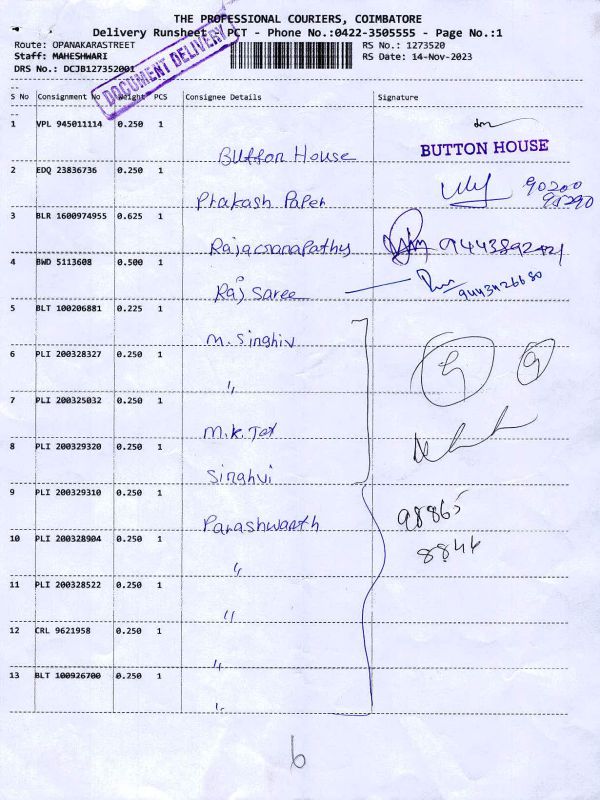 THE PROFESSIONAL COURIERS, COIMBATORE
Delivery Runsheet PCT - Phone No.:0422-3505555 - Page No.:1
Route: OPANAKARASTREET RS No.: 1273520
Staff: MAHESHWARI RS Date: 14-Nov-2023
DRS No.: DCJB127352001
DOCUMENT DELIVERY
S No Consignment No Weight PCS Consignee Details Signature
1 VPL 945011114 0.250 1 Button House BUTTON HOUSE
2 EDQ 23836736 0.250 1 Prakash Paper 90200
95290
3 BLR 1600974955 0.625 1
4 BWD 5113608 0.500 1 Raj Saree 9443426680
5 BLT 100206881 0.225 1 M. Singhiv
6 PLI 200328327 0.250 1 "
7 PLI 200325032 0.250 1 M.K. Tex
8 PLI 200329320 0.250 1 Singhvi
9 PLI 200329310 0.250 1 Parashwanth 98865
10 PLI 200328904 0.250 1 " 8846
11 PLI 200328522 0.250 1 "
12 CRL 9621958 0.250 1 "
13 BLT 100926700 0.250 1 "
6